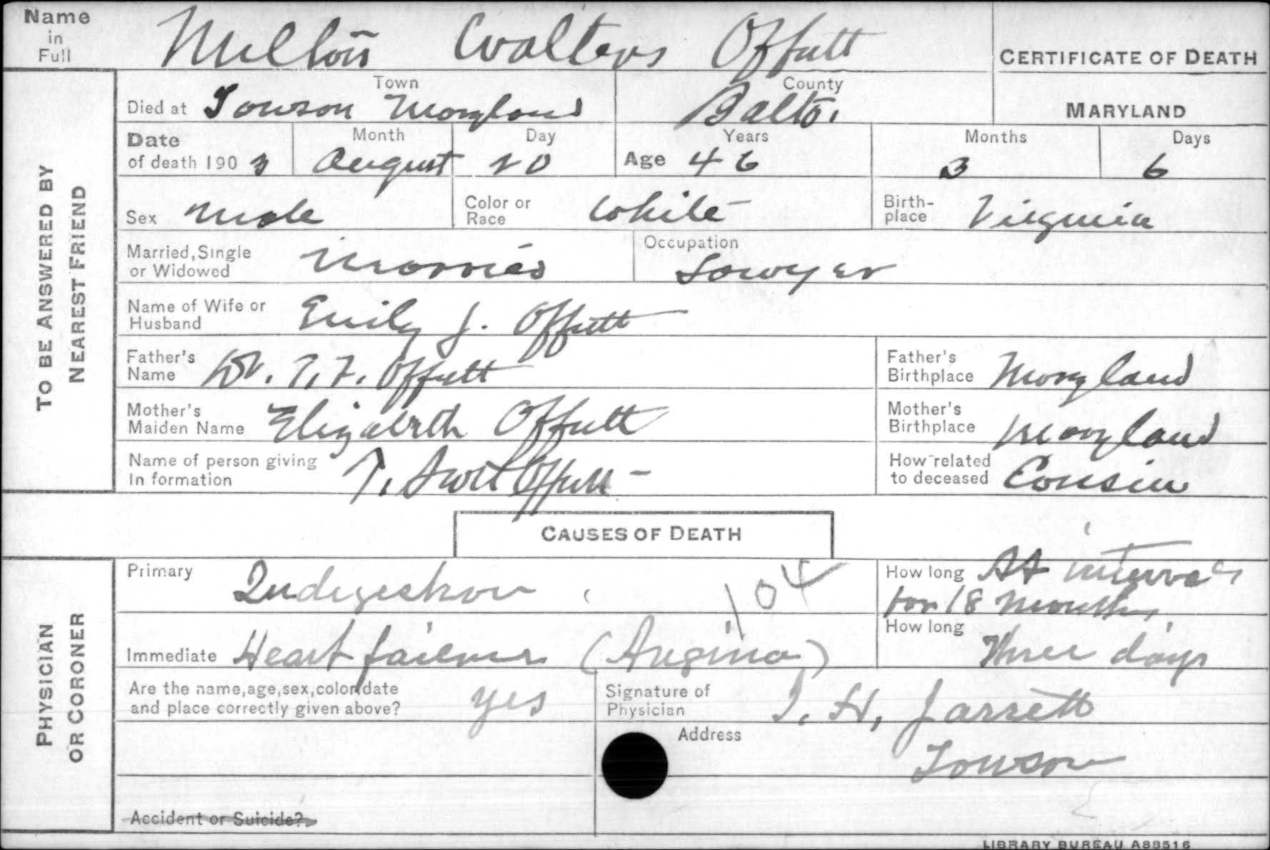 Name in Full Milton Walters Offutt
CERTIFICATE OF DEATH
MARYLAND
TO BE ANSWERED BY NEAREST FRIEND
Died at Town Towson Maryland County Balto.
Date of death 1903 Month August Day 20 Age Years 46 Months 3 Days 6
Sex Male Color or Race White Birthplace Virginia
Married, Single or Widowed Married Occupation Lawyer
Name of Wife or Husband Emily J. Offutt
Father's Name Dr. T. F. Offutt Father's Birthplace Maryland
Mother's Maiden Name Elizabeth Offutt Mother's Birthplace Maryland
Name of person giving In formation T. Scott Offutt How related to deceased Cousin
CAUSES OF DEATH
PHYSICIAN OR CORONER
Primary Indigestion 104 How long At intervals for 18 Months
Immediate Heart failure (Angina) How long Three days
Are the name, age, sex, color, date and place correctly given above? yes Signature of Physician J. H. Jarrett
Address Towson
Accident or Suicide?
LIBRARY BUREAU A88516